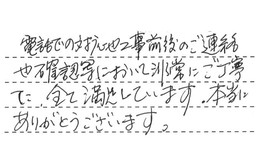 電話での対応や工事前後のご連絡
や確認等において非常にご丁寧
で、全て満足しています。本当に
ありがとうございます。